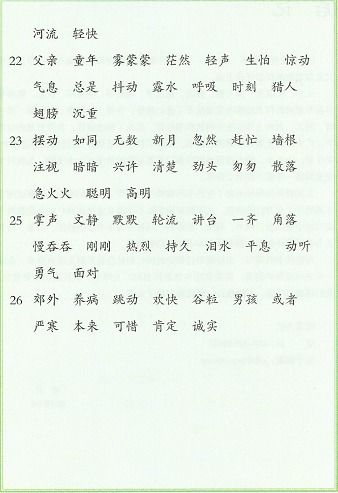 河流 轻快
22 父亲 童年 雾蒙蒙 茫然 轻声 生怕 惊动
气息 总是 抖动 露水 呼吸 时刻 猎人
翅膀 沉重
23 摆动 如同 无数 新月 忽然 赶忙 墙根
注视 暗暗 兴许 清楚 劲头 匆匆 散落
急火火 聪明 高明
25 掌声 文静 默默 轮流 讲台 一齐 角落
慢吞吞 刚刚 热烈 持久 泪水 平息 动听
勇气 面对
26 郊外 养病 跳动 欢快 谷粒 男孩 或者
严寒 本来 可惜 肯定 诚实